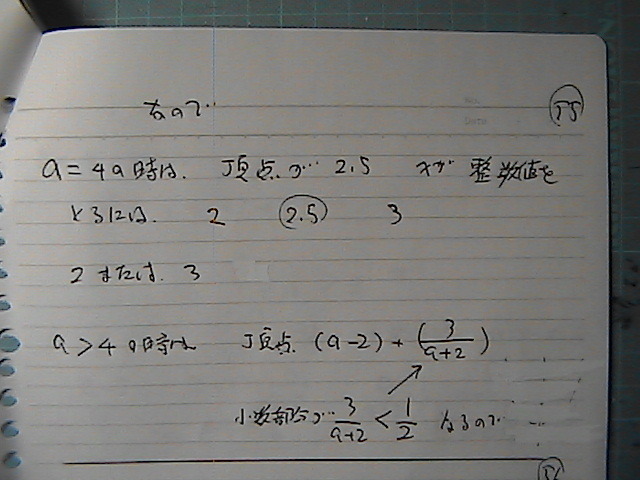 なので 55
a=4の時は、頂点が 2.5 xが 整数値を
とるには、 2 2.5 3
2または、3
a>4の時は 頂点 (a-2)+(3/(a+2))
小数部分が 3/(a+2) < 1/2 なるので